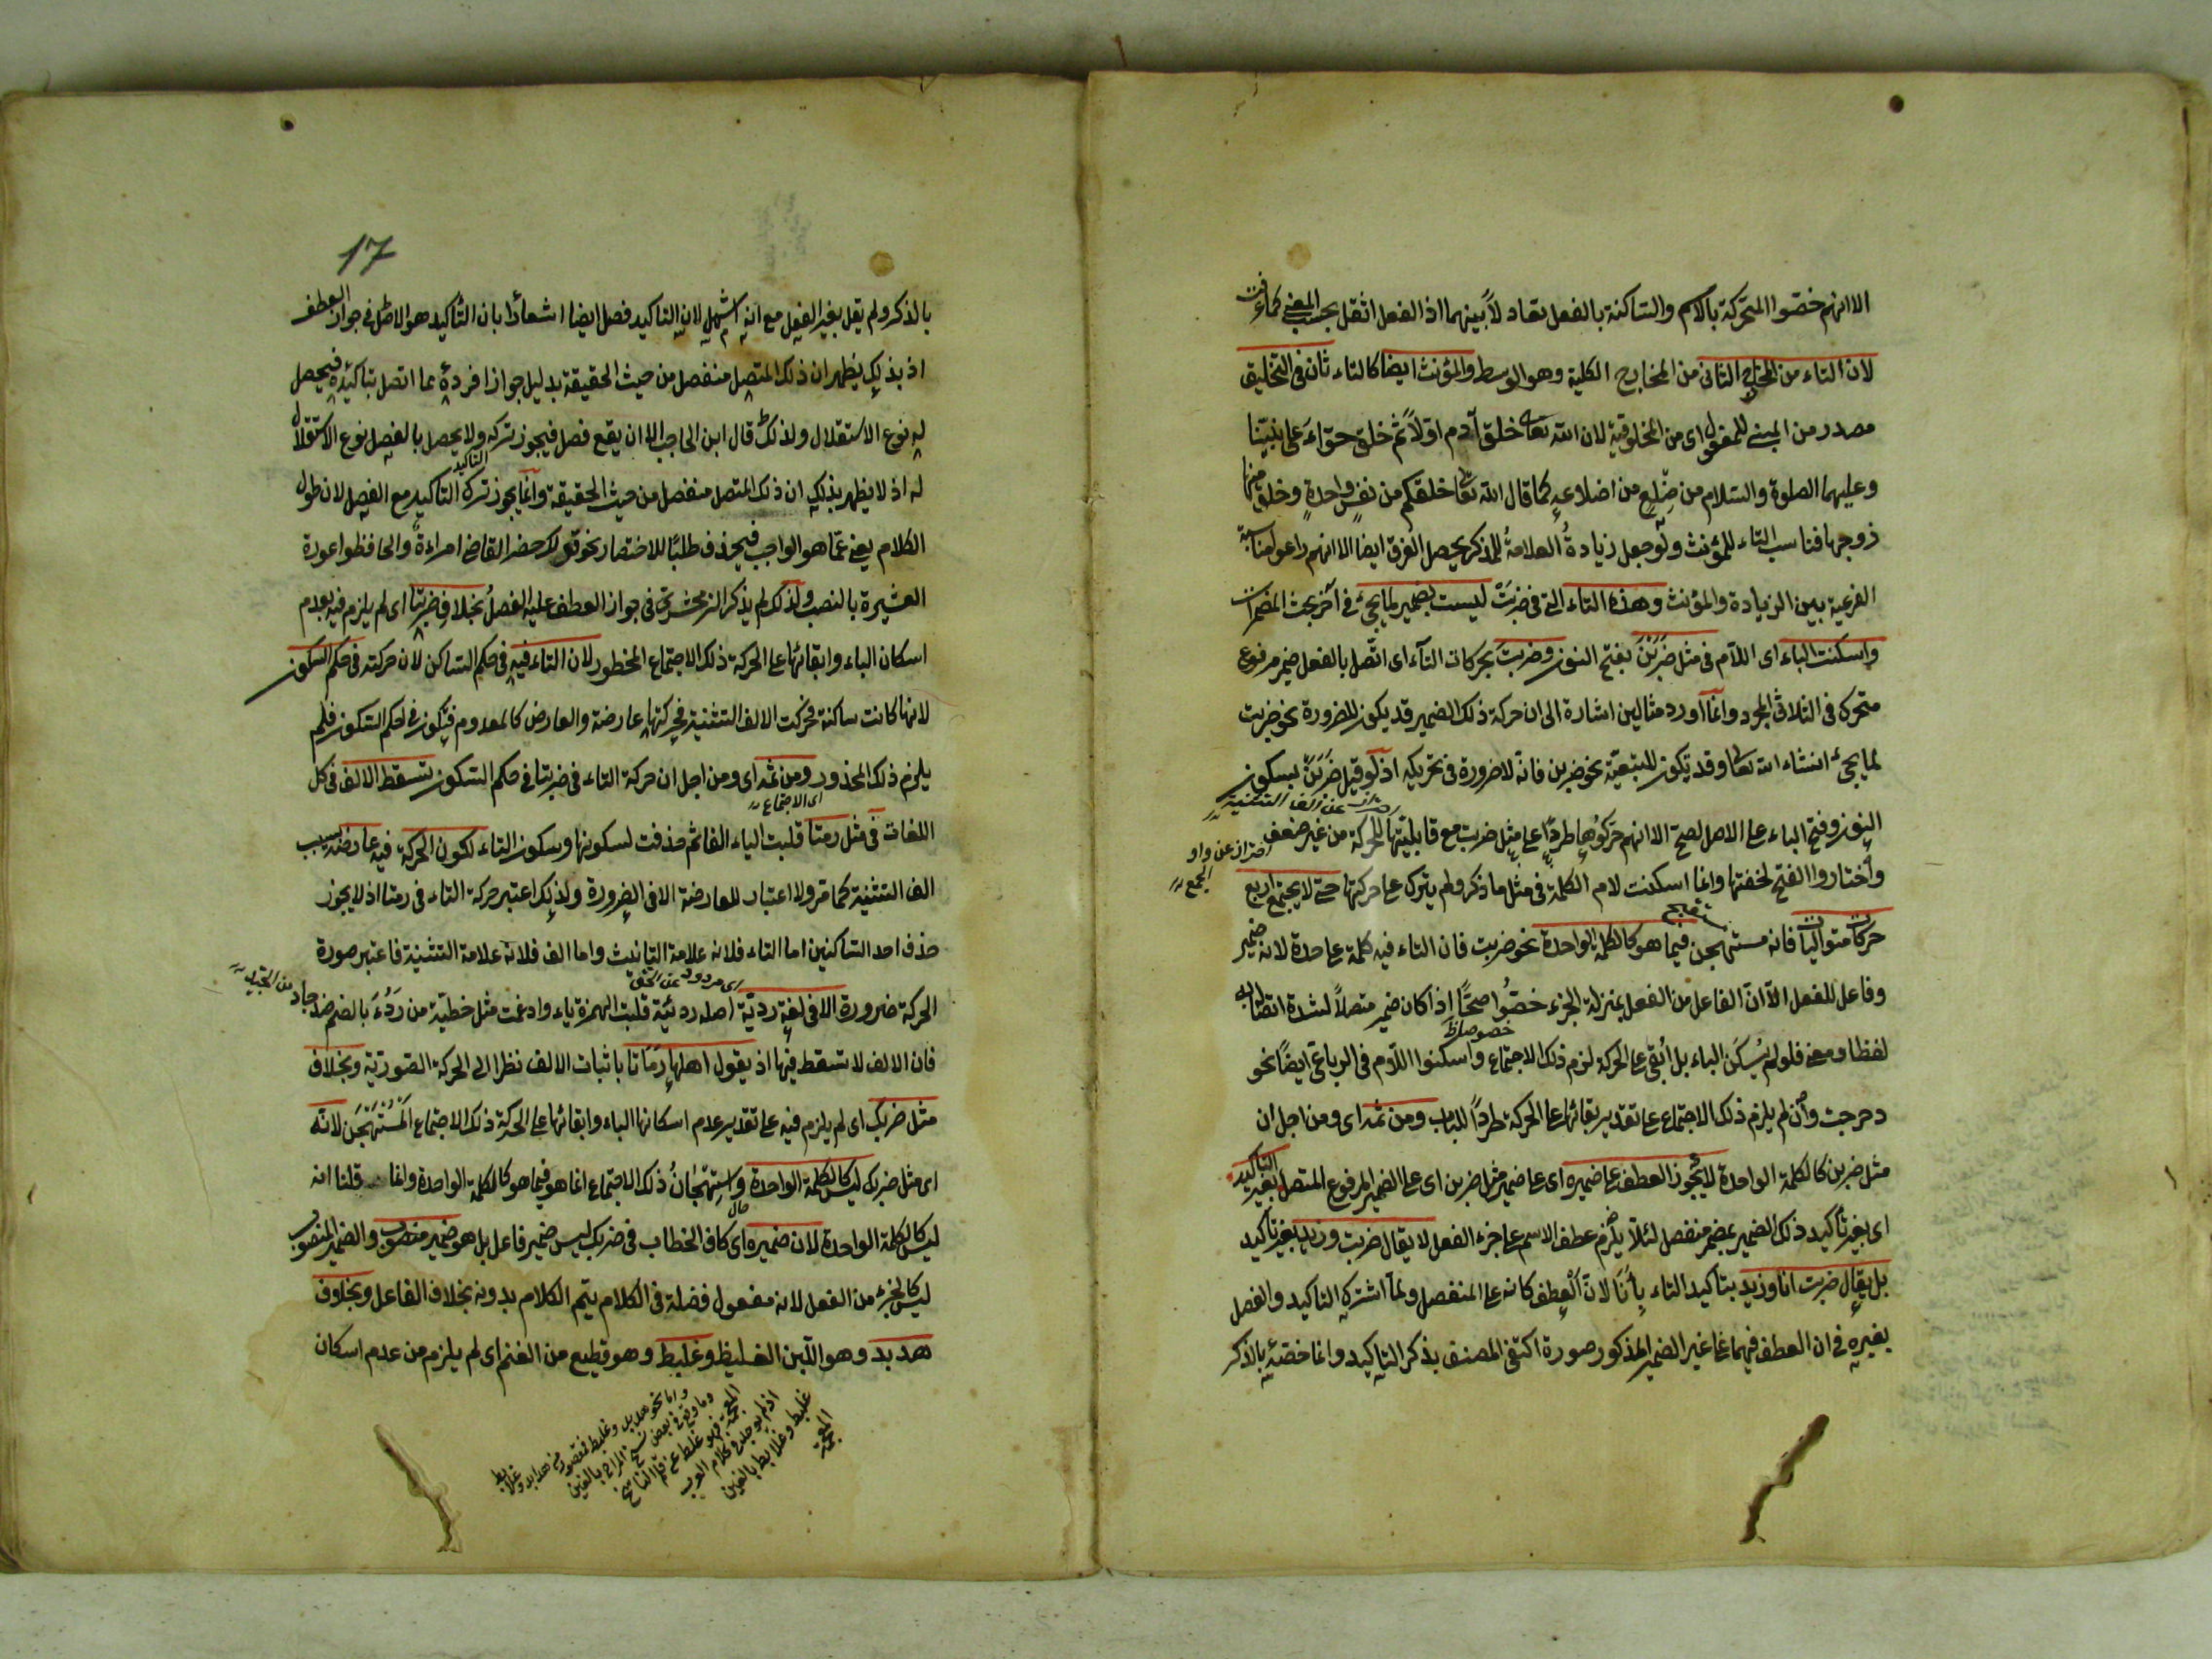 الا انهم خصّوا المتحركة بالاسم والساكنة بالفعل تعادلاً بينهما اذ الفعل اثقل بحسب المعنى كما عرفت
لان التاء من المخرج الثانى من المخارج الكلية وهو الوسط والمؤنث ايضا كالتاء ثان فى التخليق
مصدر من المبنى للمفعول اى من المخلوقية لان الله تعالى خلق آدم اوّلاً ثم خلق حوّاء على نبيّنا
وعليهما الصلوة والسلام من ضِلَعٍ من اضلاعه كما قال الله تعالى خلقكم من نفس واحدة وخلق منها
زوجها فناسب التاء للمؤنث ولو جعل زيادةُ العلامةُ للمذكر يحصل الفرق ايضا الا انهم راعوا مناسبة
الفرعية بين الزيادة والمؤنث وهذه التاء التى فى ضربَتْ ليست بضمير لما يجئ فى آخر بحث المضمرات
واسكنت الباء اى اللام فى مثل ضَرَبْنَ بفتح النون وضربت بحركات التاء اى اتّصل بالفعل ضمير مرفوع
متحرك فى الثلاثى المجرد وانما اورد مثالين اشارة الى ان حركة ذلك الضمير قد يكون للضرورة نحو ضربت
لما يجئ انشاء الله تعالى وقد تكون للتبعيّة نحو ضربن فانه لا ضرورة فى تحريكه اذ لو قيل ضَرَبَنْ بسكون
احتراز عن الف التثنية
النون وفتح الباء على الاصل لصح الا انهم حَرَّكُوها طردًا على مثل ضربت مع قابليّتها للحركة من غير ضعف
احتراز عن واو الجمع
واختاروا الفتح لخفتها وانما اسكنت لام الكلمة فى مثل ما ذكر ولم يترك على حركتها حتى لا يجتمع اربع
حركات متواليات فانه مستهجن فيما هو كالكلمة الواحدة نحو ضربت فان التاء فيه كلمة على حدة لانه ضمير
وفاعل للفعل الّا ان الفاعل من الفعل بمنزلة الجزء خصُّوا اذا كان ضمير متصلاً لشدة اتصاله
خصوصا
لفظا ومعنى فلو لم يُسكَن الباء بل اُبقى على الحركة لزم ذلك الاجتماع واسكنوا اللام فى الرباعى ايضًا نحو
دحرجت وان لم يلزم ذلك الاجتماع على تقدير بقائها على الحركة طردًا للباب ومن ثمه اى ومن اجل ان
مثل ضربن كالكلمة الواحدة لا يجوز العطف على ضميره اى على ضمير مثل ضربن اى على الضمير المرفوع المتصل بغير التأكيد
اى بغير تأكيد ذلك الضمير بضمير منفصل لئلا يلزم عطف الاسم على جزء الفعل لا يقال ضربت وزيد بغير تأكيد
بل يقال ضربت انا وزيد بتأكيد التاء بِأنَا لان العطف كانه على المنفصل ولما اشترك التاكيد والفصل
بغيره فى ان العطف فيهما على غير الضمير المذكور صورة اكتفى المصنف بذكر التاكيد وانما خصّه بالذكر
17
بالذكر ولم يقل بغير الفصل مع انه اشمل لان التاكيد فصل ايضا اشعارًا بان التأكيد هو الاصل فى جواز العطف
اذ بذلك يظهر ان ذلك المتصل منفصل من حيث الحقيقة بدليل جواز افراده عما اتصل بتاكيده فيحصل
له نوع الاستقلال ولذلك قال ابن الحاجب الا ان يقع فصل فيجوز تركه ولا يحصل بالفصل نوع الاستقلال
التاكيد
له اذ لا يظهر بذلك ان ذلك المتصل منفصل من حيث الحقيقة وانما يجوز ترك التاكيد مع الفصل لان طول
الكلام يغنى عمّا هو الواجب فيحذف طلبًا للاختصار نحو قولك حضر القاضى امراءة والحافظوا عورة
العشيرة بالنصب ولذلك لم يذكر الزمخشرى فى جواز العطف عليه الفصلُ بخلاف ضربتا اى لم يلزم فيه بعدم
اسكان الباء وابقائها على الحركة ذلك الاجتماع المحظور لان التاء فيه فى حكم الساكن لان حركته فى حكم السكون
لانها كانت ساكنة فحركت الالف التثنية فحركتها عارضة والعارض كالمعدوم فيكون فى حكم السكون فلم
يلزم ذلك المحذور ومن ثمه اى ومن اجل ان حركة التاء فى ضربتا فى حكم السكون تسقط الالف فى كل
اى الاجتماع
اللغات فى مثل رمتا قلبت الياء الفا ثم حذفت لسكونها وسكون التاء لكون الحركة فيه عارضة بسبب
الف التثنية كما مر ولا اعتبار للعارضة الا فى الضرورة ولذلك اعتبر حركة التاء فى رمتا اذ لا يجوز
حذف احد الساكنين اما التاء فلانه علامة التانيث واما الف فلانه علامة التثنية فاعتبر صورة
اى مردود عن الحق
الحركة ضرورة الا فى لغة رديّة اصله رديئة قلبت الهمزة ياء وادغمت مثل خطيّة من ردُءَ بالضم ضد جاد
فان الالف لا تسقط فيها اذ يقول اهلها رَمَاتا باثبات الالف نظرا الى الحركة الصورية وبخلاف
مثل ضربك اى لم يلزم فيه على تقدير عدم اسكانها الباء وابقائها على الحركة ذلك الاجتماع المُسْتَهْجَن لانه
اى مثل ضربك ليس كالكلمة الواحدة واستهجانُ ذلك الاجتماع انما هو فيما هو كالكلمة الواحدة وانما قلنا انه
ليس كالكلمة الواحدة لان ضميره اى كاف الخطاب فى ضربك ليس ضمير فاعل بل هو ضمير منصوب والضمير المنصوب
ليس كالجزء من الفعل لانه مفعول فضلة فى الكلام يتم الكلام بدونه بخلاف الفاعل وبخلاف
هدبد وهو اللبن الغليظ وغلبط وهو قطيع من الغنم اى لم يلزم من عدم اسكان
واما نحو هدبد وغلبط فمقصور من هدابد وغلابط
وما وقع فى بعض نسخ المراح بالغين
المعجمة فهو غلط عن قلم الناسخ
اذ لم يوجد فى كلام العرب
غلبط وغلابط بالغين
المعجمة